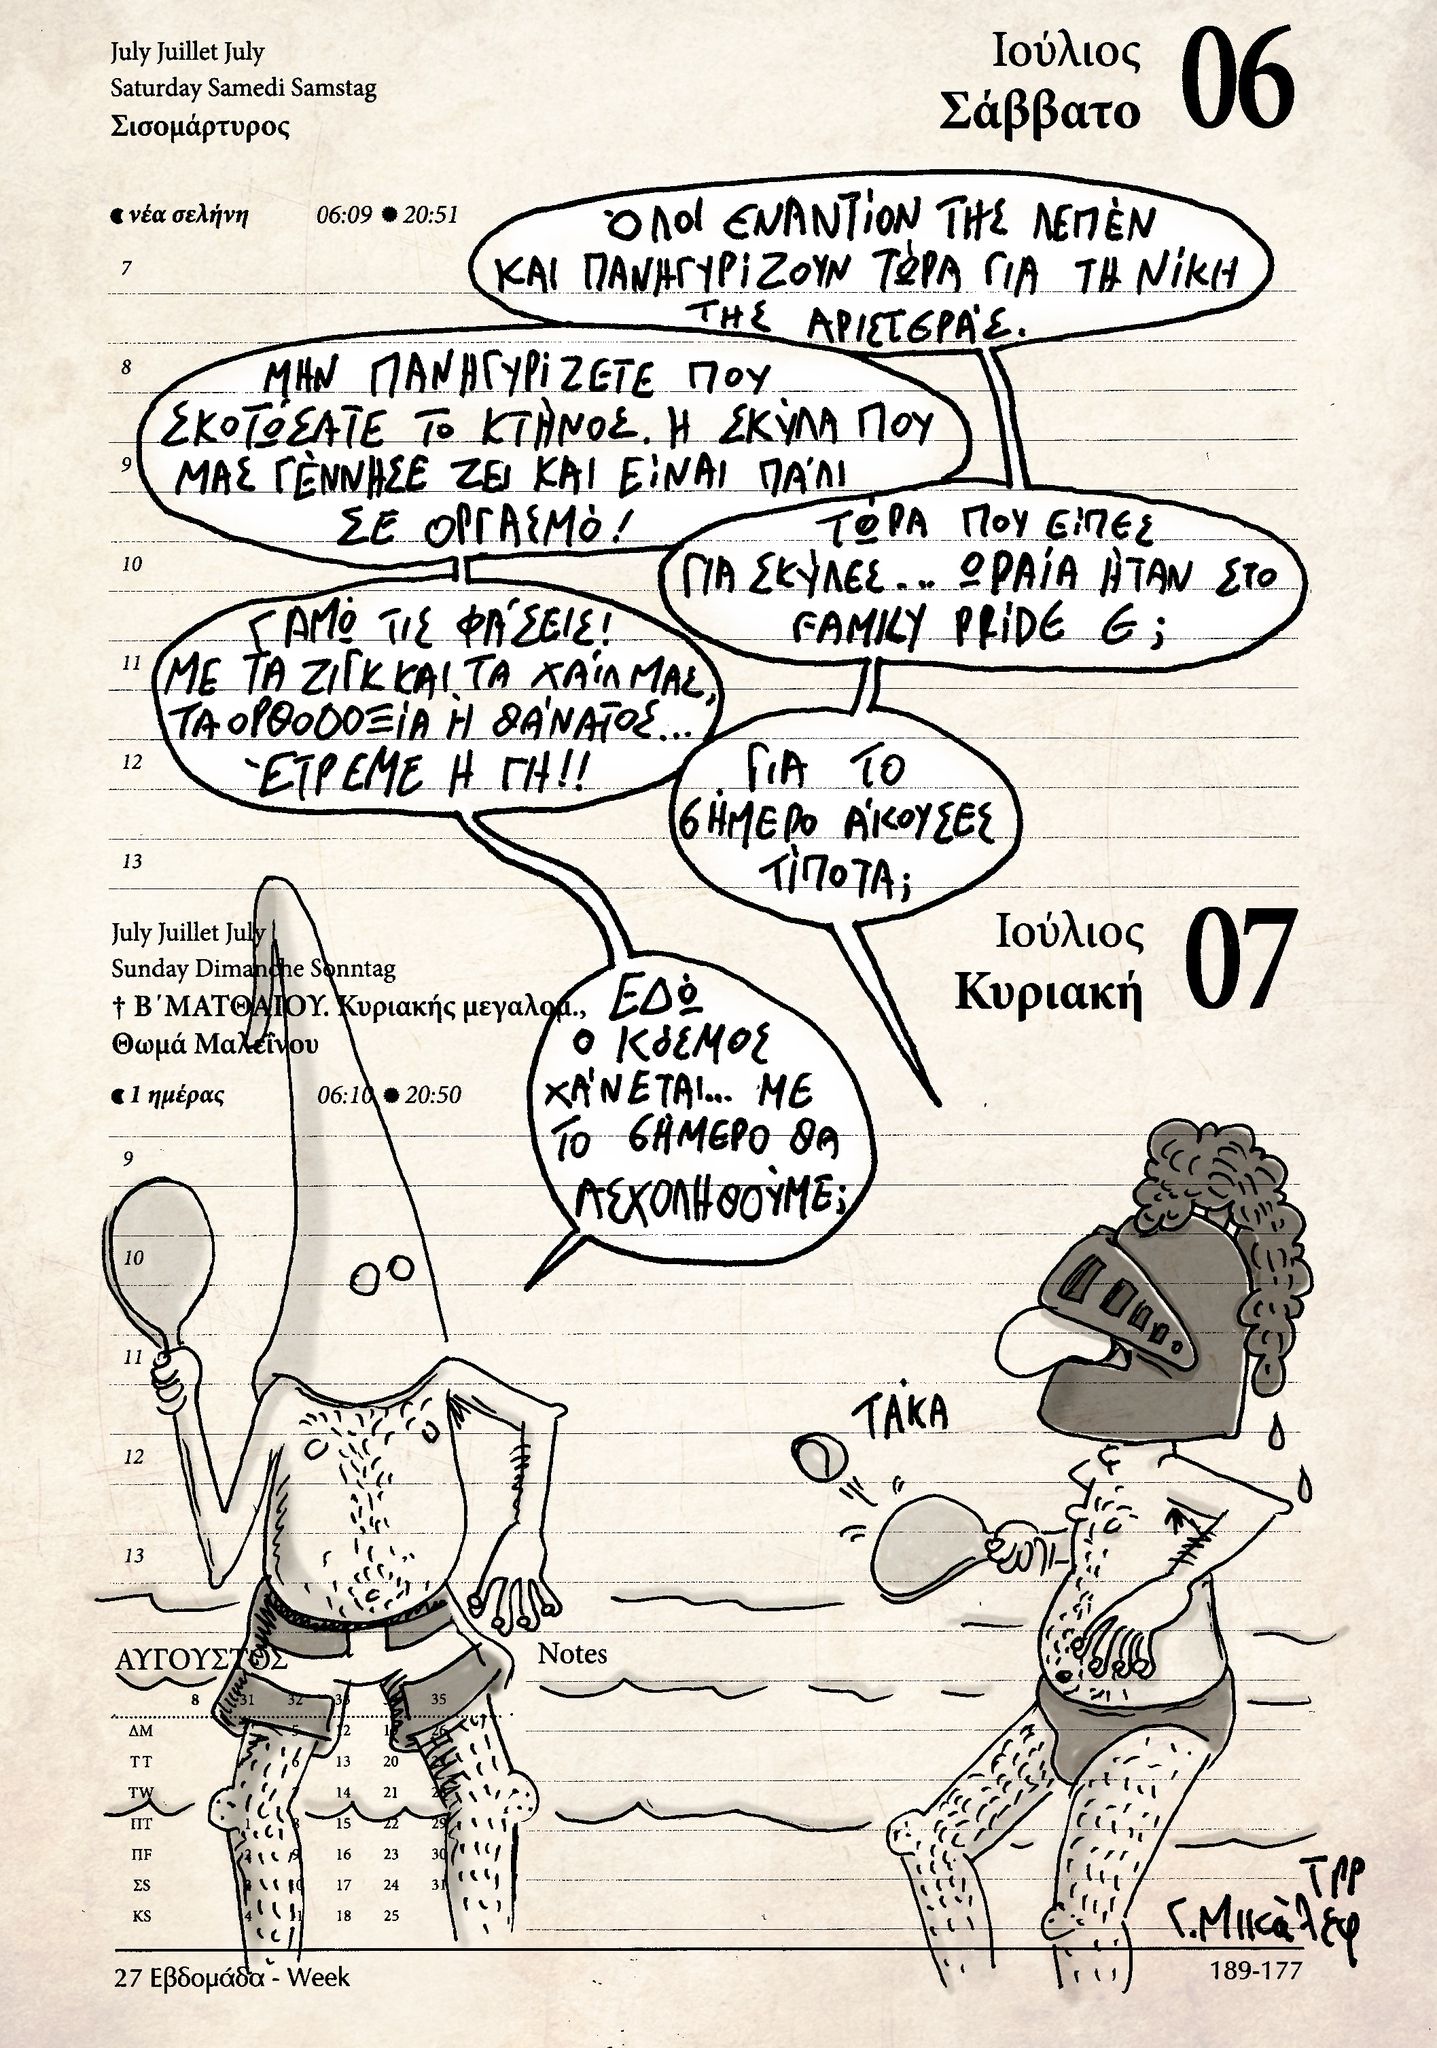 July Juillet July
Saturday Samedi Samstag
Σισομάρτυρος
Ιούλιος
Σάββατο
06
νέα σελήνη 06:09 20:51
ΌΛΟΙ ΕΝΑΝΤΊΟΝ ΤΗΣ ΛΕΠΈΝ
ΚΑΙ ΠΑΝΗΓΥΡΊΖΟΥΝ ΤΏΡΑ ΓΙΑ ΤΗ ΝΊΚΗ
ΤΗΣ ΑΡΙΣΤΕΡΆΣ.
7
8
9
10
11
12
13
ΜΗΝ ΠΑΝΗΓΥΡΊΖΕΤΕ ΠΟΥ
ΣΚΟΤΏΣΑΤΕ ΤΟ ΚΤΉΝΟΣ. Η ΣΚΎΛΑ ΠΟΥ
ΜΑΣ ΓΈΝΝΗΣΕ ΖΕΙ ΚΑΙ ΕΊΝΑΙ ΠΆΛΙ
ΣΕ ΟΡΓΑΣΜΌ!
ΤΏΡΑ ΠΟΥ ΕΊΠΕΣ
ΓΙΑ ΣΚΎΛΕΣ... ΩΡΑΊΑ ΉΤΑΝ ΣΤΟ
FAMILY PRIDE Ε;
ΓΑΜΏ ΤΙΣ ΦΆΣΕΙΣ!
ΜΕ ΤΑ ΖΙΓΚ ΚΑΙ ΤΑ ΧΆΙΛ ΜΑΣ,
ΤΑ ΟΡΘΟΔΟΞΊΑ Ή ΘΆΝΑΤΟΣ...
ΈΤΡΕΜΕ Η ΓΗ!!
ΓΙΑ ΤΟ
6ΉΜΕΡΟ ΆΚΟΥΣΕΣ
ΤΊΠΟΤΑ;
July Juillet July
Sunday Dimanche Sonntag
† Β΄ΜΑΤΘΑΙΟΥ. Κυριακής μεγαλομ.,
Θωμά Μαλεΐνου
Ιούλιος
Κυριακή
07
1 ημέρας 06:10 20:50
ΕΔΏ
Ο ΚΌΣΜΟΣ
ΧΆΝΕΤΑΙ... ΜΕ
ΤΟ 6ΉΜΕΡΟ ΘΑ
ΑΣΧΟΛΗΘΟΎΜΕ;
9
10
11
12
13
ΤΆΚΑ
ΑΥΓΟΥΣΤΟΣ
Notes
8 31 32 33 35
ΔM 5 12 19 26
ΤT 6 13 20
ΤW 7 14 21 28
ΠT 1 8 15 22 29
ΠF 2 9 16 23 30
ΣS 3 10 17 24 31
ΚS 4 11 18 25
ΤΡΡ
Γ.Μικάλεφ
27 Εβδομάδα - Week
189-177